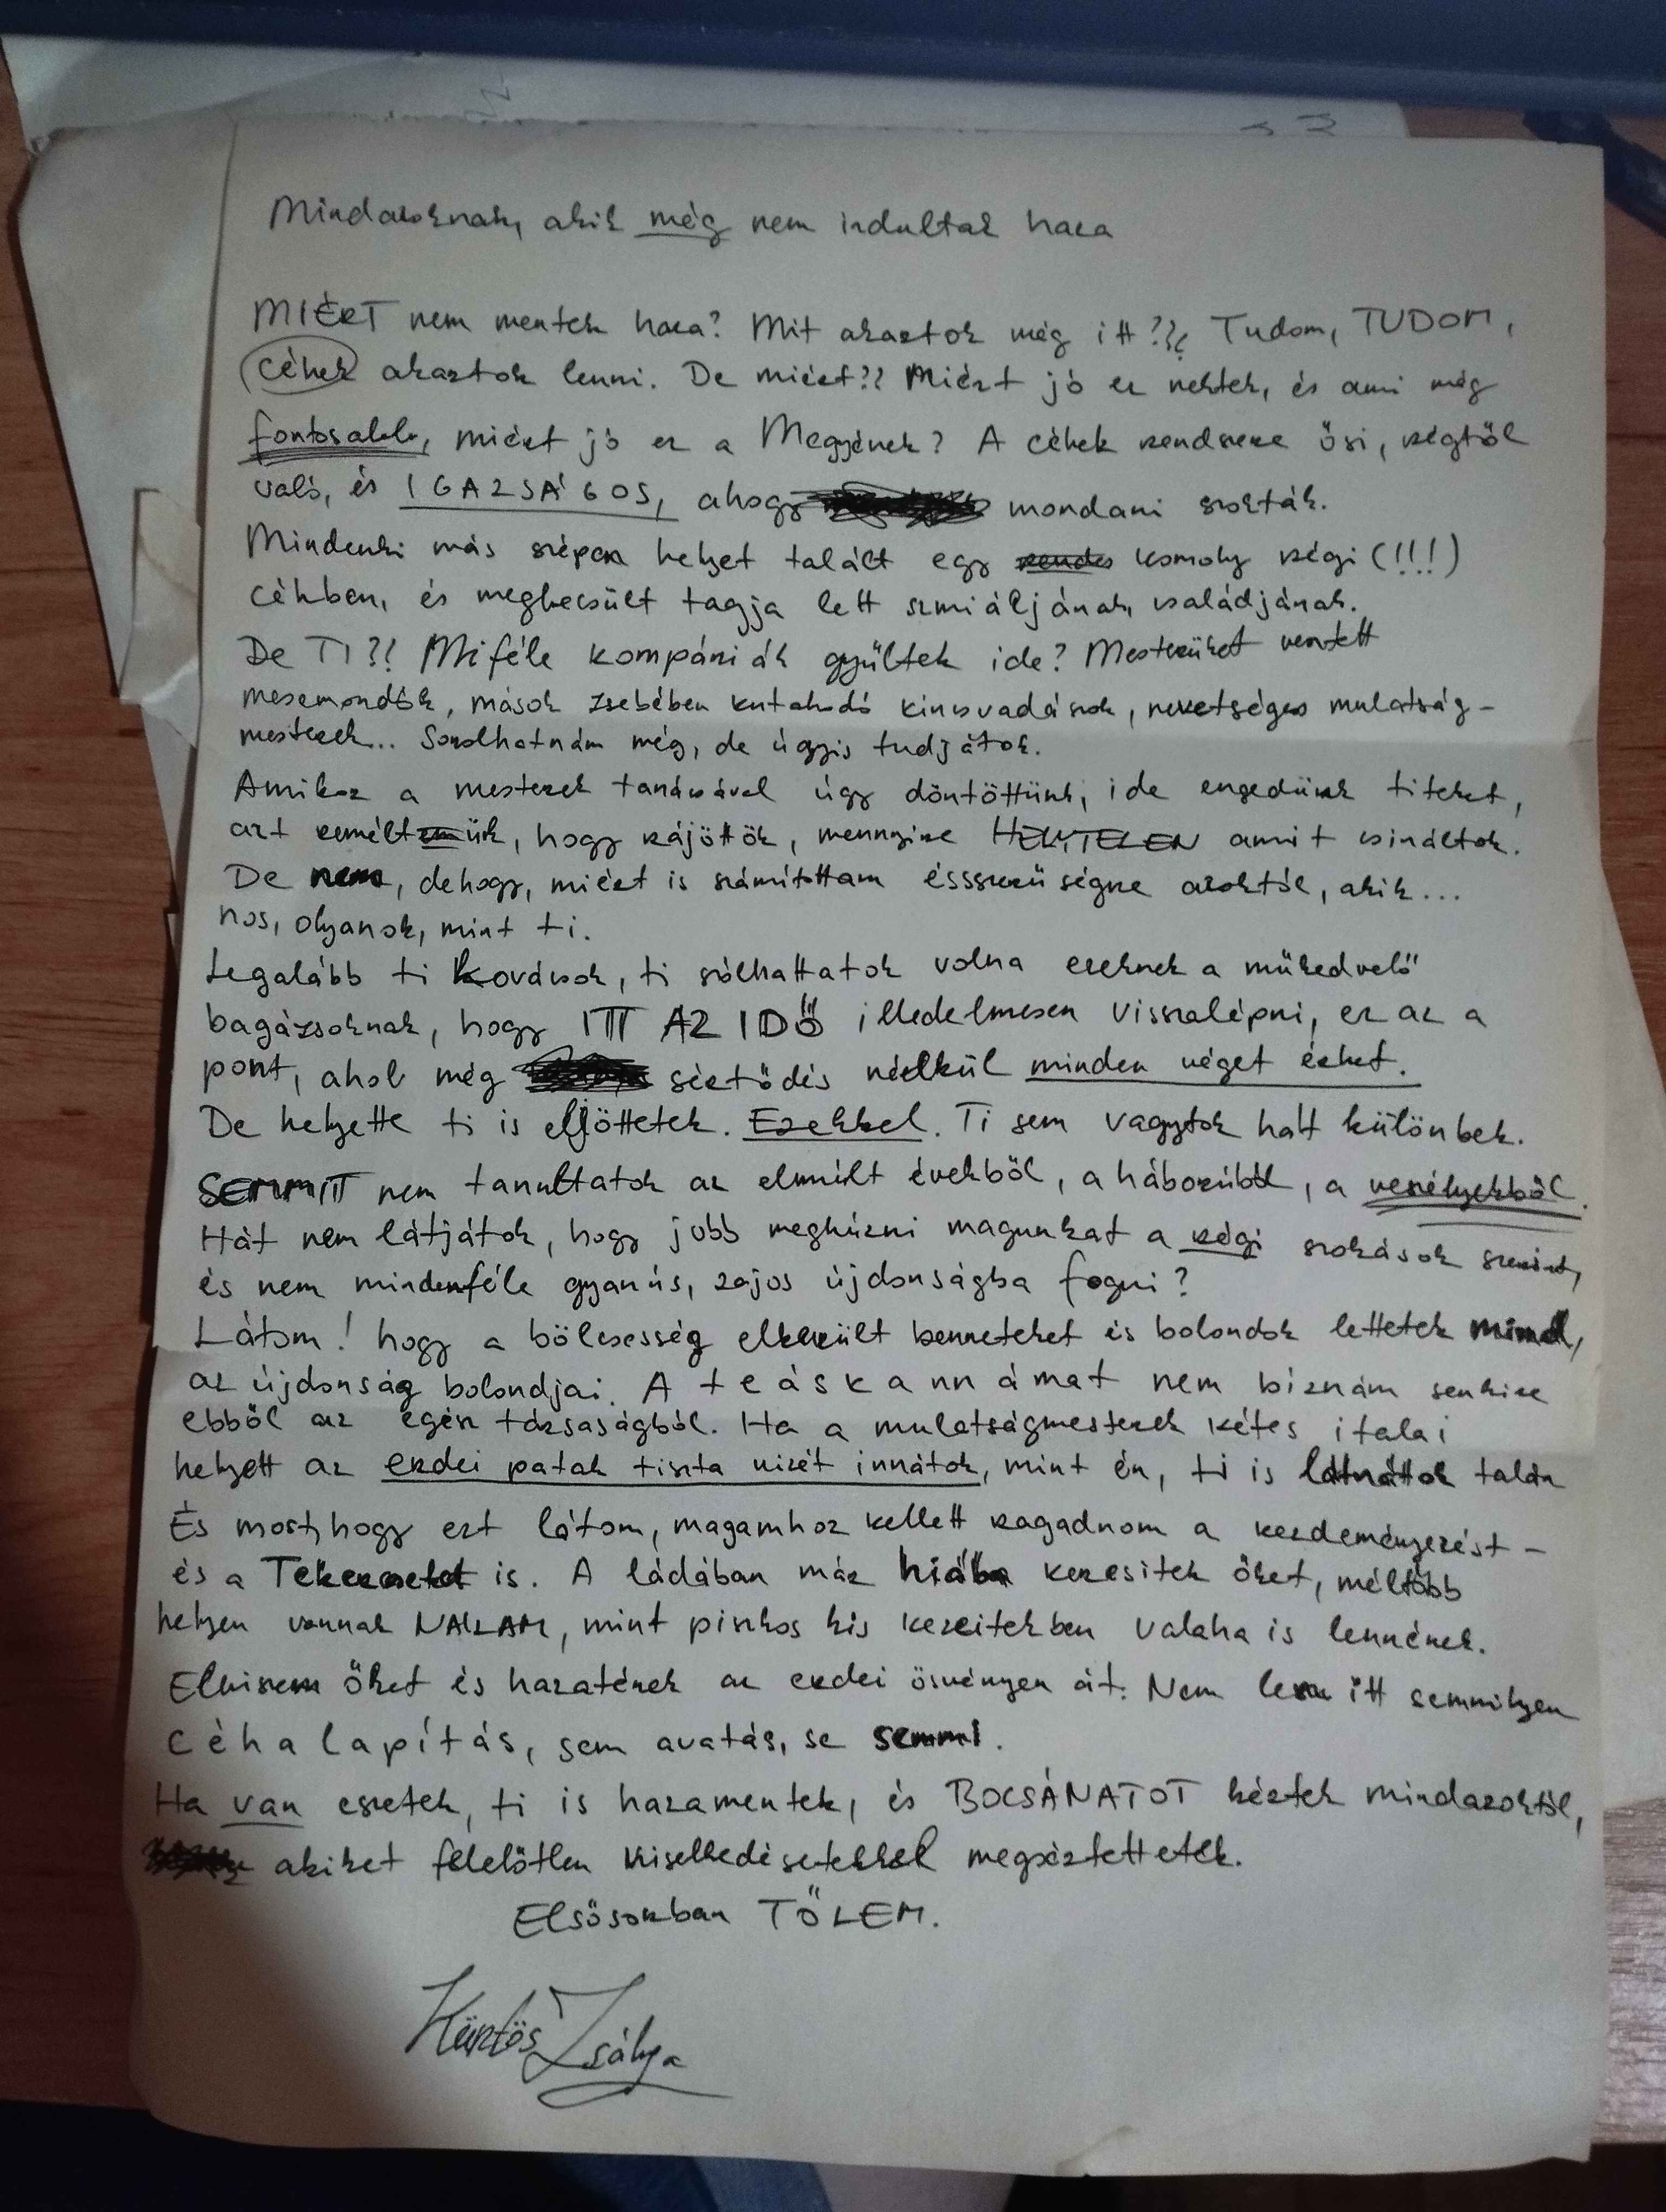 Mindazoknak, akik még nem indultak haza
MIÉRT nem mentek haza? Mit akartok még itt??? Tudom, TUDOM,
céhek akartok lenni. De miért?? Miért jó ez nektek, és ami még
fontosabb, miért jó ez a Megyének? A céhek rendszere ősi, régtől
való, és IGAZSÁGOS, ahogy mondani szokták.
Mindenki más szépen helyet talált egy rendes komoly régi (!!!)
céhben, és megbecsült tagja lett szmiáljának, családjának.
De TI?! Miféle kompániák gyűltek ide? Mesterüket vesztett
mesemondók, mások zsebében kutakodó kincsvadászok, nevetséges mulatság-
mesterek... Sorolhatnám még, de úgyis tudjátok.
Amikor a mesterek tanácsával úgy döntöttünk, ide engedünk titeket,
azt reméltük, hogy rájöttök, mennyire HELYTELEN amit csináltok.
De nem, dehogy, miért is számítottam ésssszerűségre azoktól, akik...
nos, olyanok, mint ti.
Legalább ti kovácsok, ti szólhattatok volna ezeknek a műkedvelő
bagázsoknak, hogy ITT AZ IDŐ illedelmesen visszalépni, ez az a
pont, ahol még sértődés nélkül minden véget érhet.
De helyette ti is eljöttetek. Ezekkel. Ti sem vagytok hát különbek.
SEMMIT nem tanultatok az elmúlt évekből, a háborúból, a veszélyekből.
Hát nem látjátok, hogy jobb meghúzni magunkat a régi szokások szerint,
és nem mindenféle gyanús, zajos újdonságba fogni?
Látom! hogy a bölcsesség elkerült benneteket és bolondok lettetek mind,
az újdonság bolondjai. A teáskannámat nem bíznám senkire
ebből az egész társaságból. Ha a mulatságmesterek kétes italai
helyett az erdei patak tiszta vizét innátok, mint én, ti is látnátok talán
És most, hogy ezt látom, magamhoz kellett ragadnom a kezdeményezést -
és a Tekercseket is. A ládában már hiába keresitek őket, méltóbb
helyen vannak NÁLAM, mint piszkos kis kezeitekben valaha is lennének.
Elviszem őket és hazatérek az erdei ösvényen át. Nem lesz itt semmilyen
céhalapítás, sem avatás, se semmi.
Ha van eszetek, ti is hazamentek, és BOCSÁNATOT kértek mindazoktól,
akiket felelőtlen viselkedésetekkel megsértettetek.
Elsősorban TŐLEM.
Kürtös Zsálya